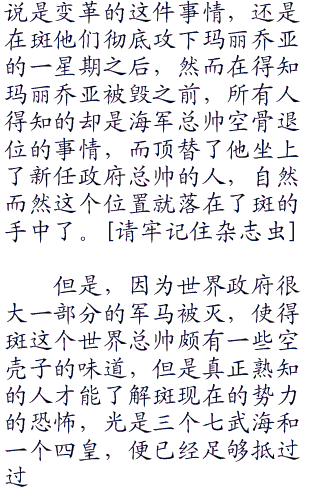 说是变革的这件事情，还是
在斑他们彻底攻下玛丽乔亚
的一星期之后，然而在得知
玛丽乔亚被毁之前，所有人
得知的却是海军总帅空骨退
位的事情，而顶替了他坐上
了新任政府总帅的人，自然
而然这个位置就落在了斑的
手中了。[请牢记住杂志虫]
但是，因为世界政府很
大一部分的军马被灭，使得
斑这个世界总帅颇有一些空
壳子的味道，但是真正熟知
的人才能了解斑现在的势力
的恐怖，光是三个七武海和
一个四皇，便已经足够抵过
过